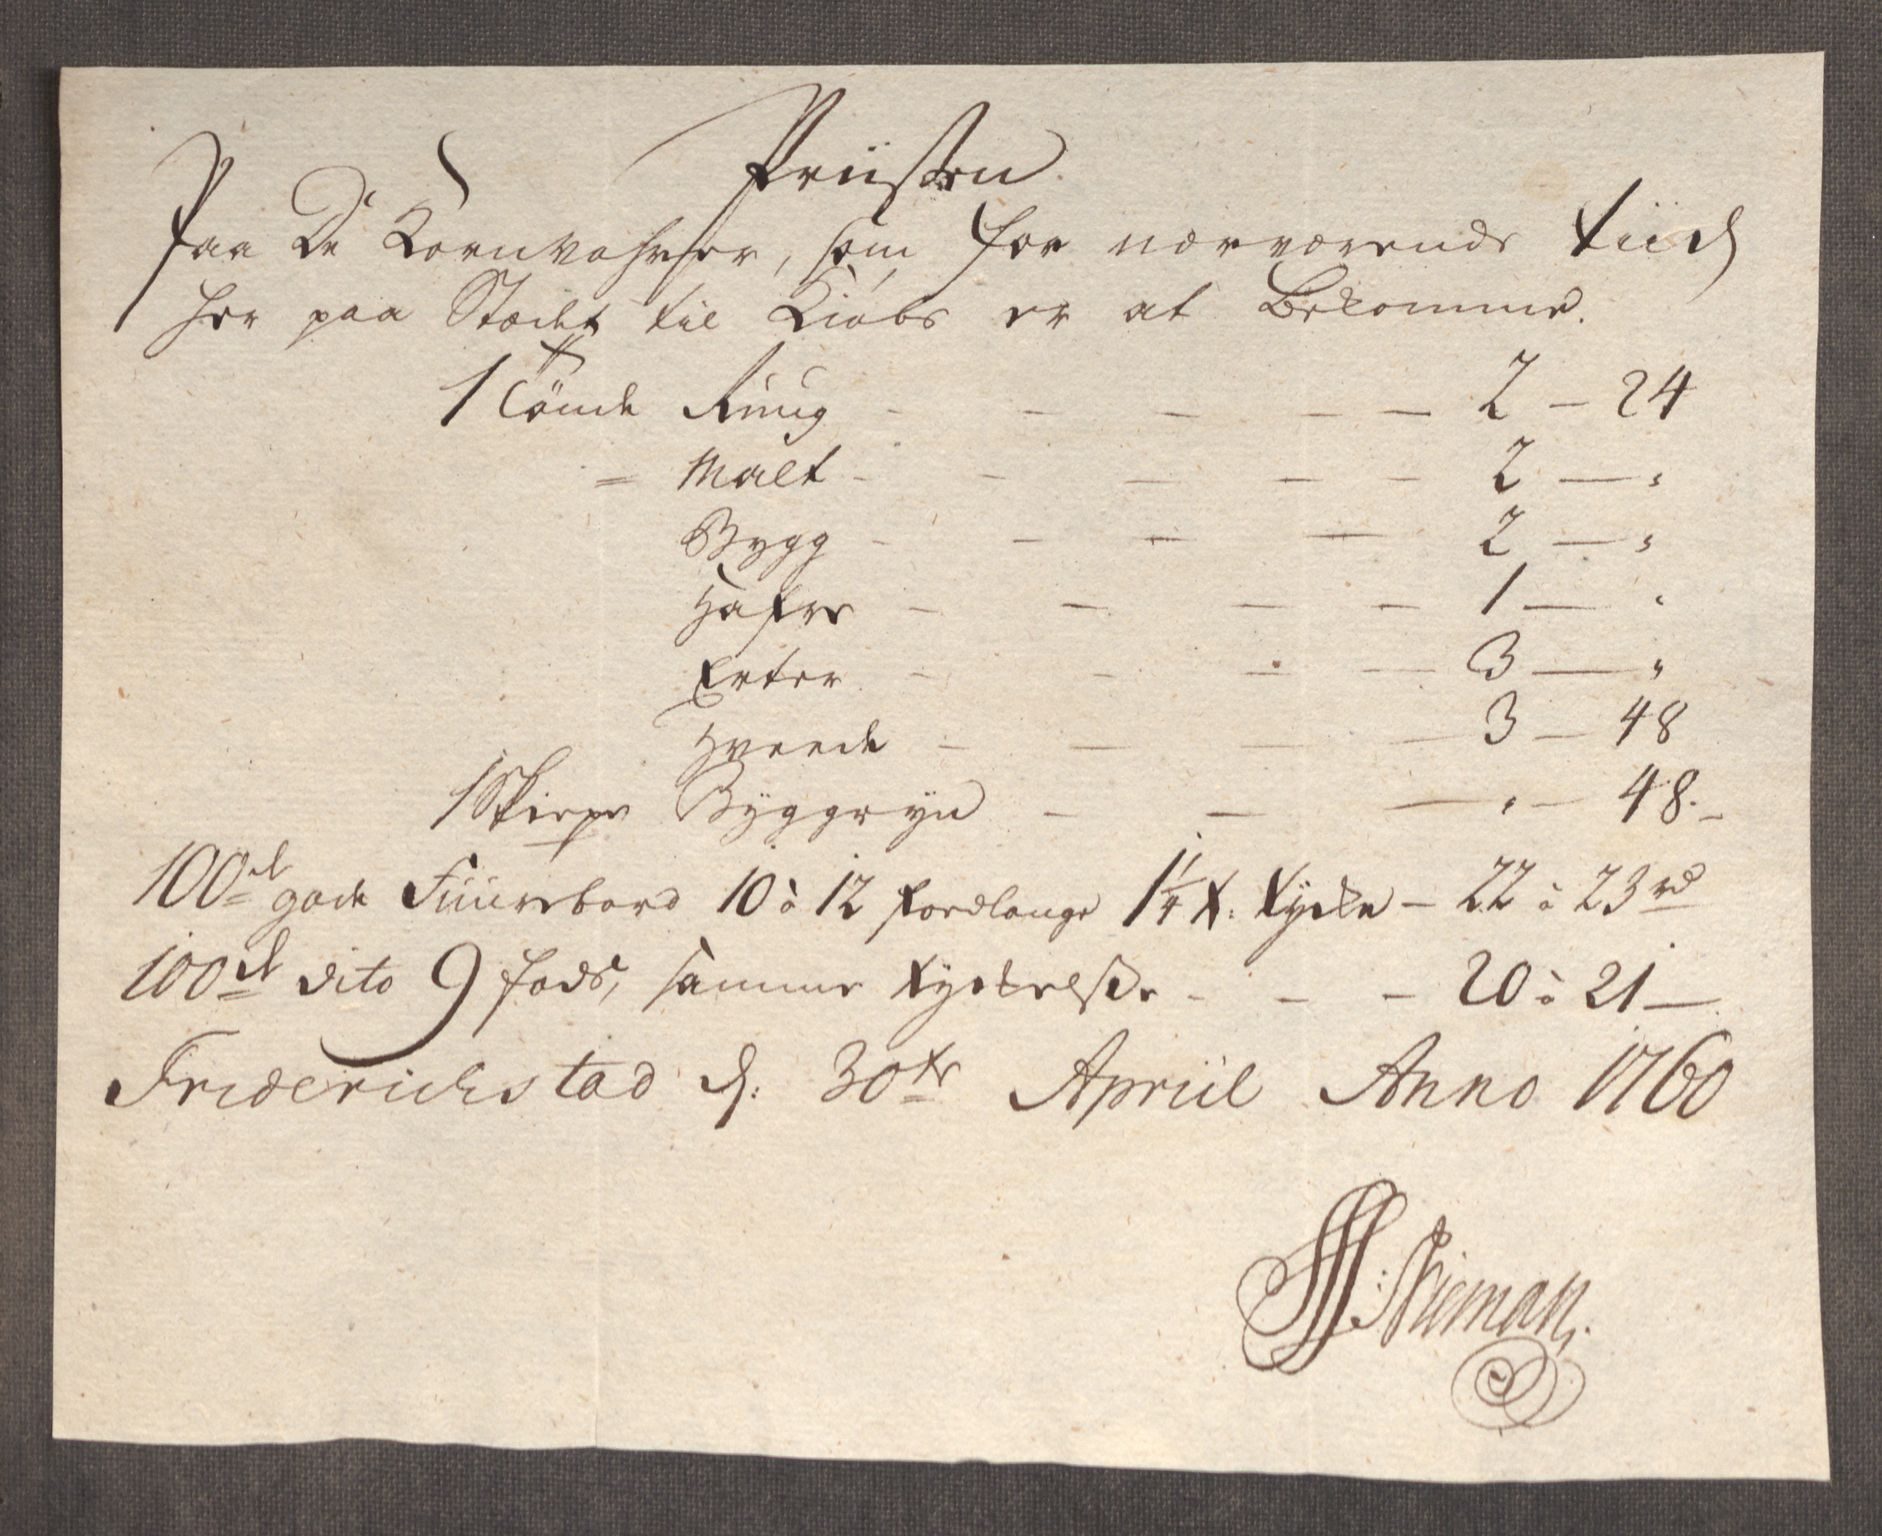 Priisen
Paa De Kornvahrer, som for nærværende tiid
her paa Stædet til Kiøbs er at Bekomme.
1 Tönde Ruug - - - - - 2 - 24
= Malt - - - - - 2 - "
Bygg - - - - 2 - "
Hafre - - - - 1 - "
Erter - - - - 3 - "
Hveede - - - - 3 - 48
1 Skieppe Byggryn - - - " - 48. -
100de gode Fuurebord 10 à 12 foedlange 1 1/4 t: tycke - 22 à 23 rd
100de dito 9 fods, samme tyckelsse - - - 20 à 21 -
Friderichstad d: 30te Apriil Anno 1760
Nieman